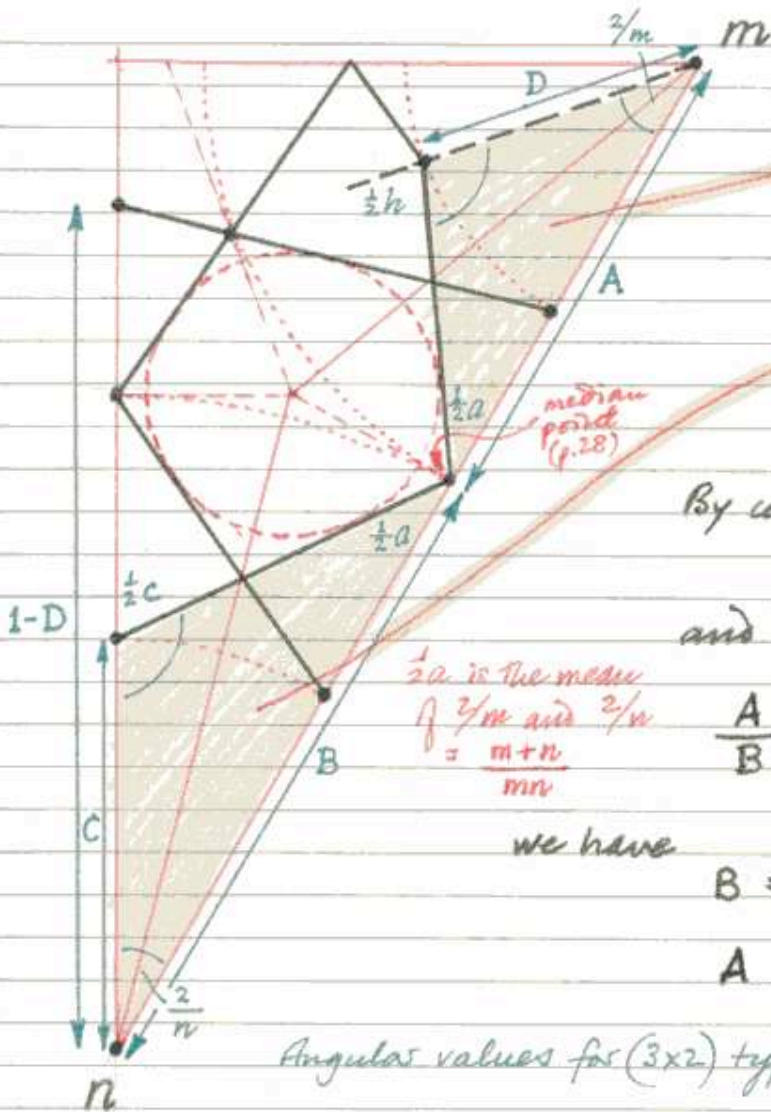 2/m
m
D
½h
A
½a
median
point
(p.28)
½a
By
½c
1-D
and
½a is the mean
of 2/m and 2/n
= m+n
mn
A
B
B
C
we have
B =
A
2
n
Angular values for (3x2) ty
n